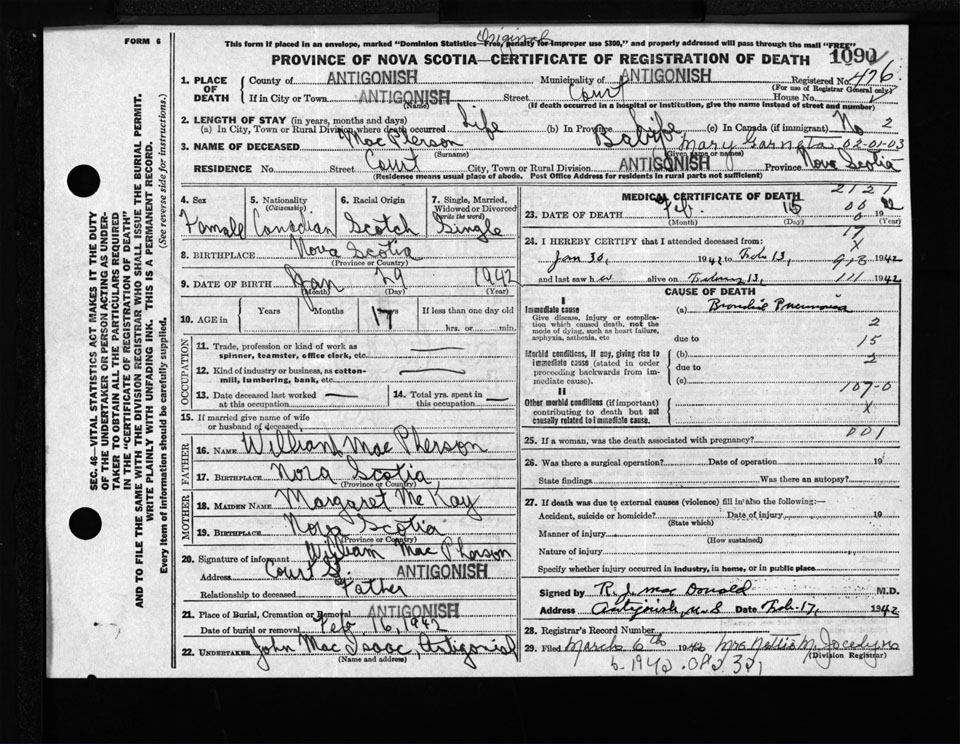 FORM 6
Original
This form if placed in an envelope, marked "Dominion Statistics—Free, penalty for improper use $300," and properly addressed will pass through the mail "FREE"
PROVINCE OF NOVA SCOTIA—CERTIFICATE OF REGISTRATION OF DEATH
1090
1. PLACE OF DEATH County of ANTIGONISH Municipality of ANTIGONISH Registered No. 476
(For use of Registrar General only)
If in City or Town ANTIGONISH Street Court House No.
(Name) (If death occurred in a hospital or institution, give the name instead of street and number)
2. LENGTH OF STAY (in years, months and days)
(a) In City, Town or Rural Division where death occurred Life (b) In Province Life (c) In Canada (if immigrant) No 2
3. NAME OF DECEASED MacPherson Baby Mary Garneta 02-01-03
(Surname) (Given name or names)
RESIDENCE No. Street Court City, Town or Rural Division ANTIGONISH Province Nova Scotia
(Residence means usual place of abode. Post Office Address for residents in rural parts not sufficient)
4. Sex 5. Nationality (Citizenship) 6. Racial Origin 7. Single, Married, Widowed or Divorced (write the word)
Female Canadian Scotch Single
8. BIRTHPLACE Nova Scotia
(Province or Country)
9. DATE OF BIRTH Jan 29 1942
(Month) (Day) (Year)
10. AGE in Years Months 17 Days If less than one day old
hrs. or min.
OCCUPATION
11. Trade, profession or kind of work as spinner, teamster, office clerk, etc.
12. Kind of industry or business, as cotton-mill, lumbering, bank, etc.
13. Date deceased last worked at this occupation
14. Total yrs. spent in this occupation
15. If married give name of wife or husband of deceased
FATHER
16. NAME William Mac Pherson
17. BIRTHPLACE Nova Scotia
(Province or Country)
MOTHER
18. MAIDEN NAME Margaret Mc Kay
19. BIRTHPLACE Nova Scotia
(Province or Country)
20. Signature of informant William Mac Pherson
Address Court S. ANTIGONISH
Relationship to deceased Father
21. Place of Burial, Cremation or Removal ANTIGONISH
Date of burial or removal Feb 16, 1942
22. UNDERTAKER John Mac Isaac, Antigonish
(Name and address)
MEDICAL CERTIFICATE OF DEATH
2121
23. DATE OF DEATH Feb. 15 19
(Month) (Day) (Year)
17
24. I HEREBY CERTIFY that I attended deceased from:
X
Jan 30, 1942 to Feb 13, 1942
and last saw h er alive on 13, 111 1942
CAUSE OF DEATH
I
Immediate cause
Give disease, injury or complication which caused death, not the mode of dying, such as heart failure, asphyxia, asthenia, etc
(a) Bronchial Pneumonia
2
due to
15
Morbid conditions, if any, giving rise to immediate cause (stated in order proceeding backwards from immediate cause).
(b)
2
due to
(c)
107-0
II
Other morbid conditions (if important) contributing to death but not causally related to immediate cause.
X
001
25. If a woman, was the death associated with pregnancy?
26. Was there a surgical operation? Date of operation 19
State findings Was there an autopsy?
27. If death was due to external causes (violence) fill in also the following:—
Accident, suicide or homicide? Date of injury 19
(State which)
Manner of injury
(How sustained)
Nature of injury
Specify whether injury occurred in industry, in home, or in public place
Signed by R. J. Mac Donald M.D.
Address Antigonish, N.S Date Feb. 17, 1942
28. Registrar's Record Number
29. Filed March 6th 1942 Mrs Nellie M. Jocelyn
(Division Registrar)
SEC. 46—VITAL STATISTICS ACT MAKES IT THE DUTY
OF THE UNDERTAKER OR PERSON ACTING AS UNDER-
TAKER TO OBTAIN ALL THE PARTICULARS REQUIRED
IN THE "CERTIFICATE OF REGISTRATION OF DEATH"
AND TO FILE THE SAME WITH THE DIVISION REGISTRAR WHO SHALL ISSUE THE BURIAL PERMIT.
WRITE PLAINLY WITH UNFADING INK. THIS IS A PERMANENT RECORD.
Every item of information should be carefully supplied. (See reverse side for instructions).